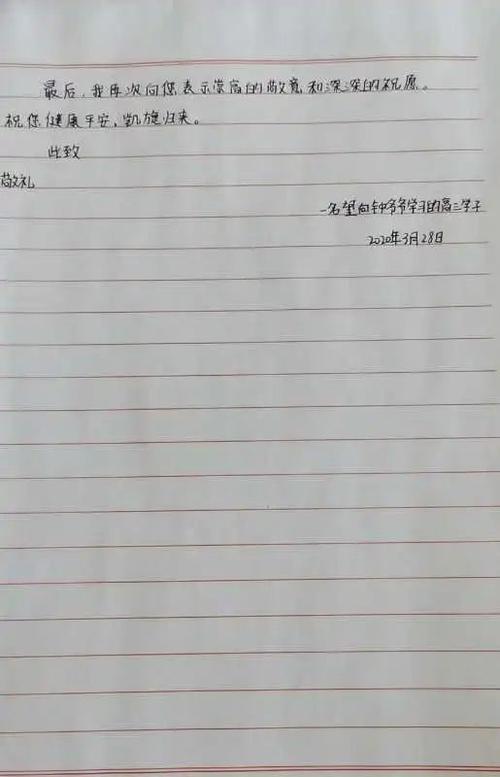 最后，我再次向您表示崇高的敬意和深深的祝愿。
祝您健康平安，凯旋归来。
此致
敬礼
一名望向钟爷爷学习的高三学子
2020年3月28日